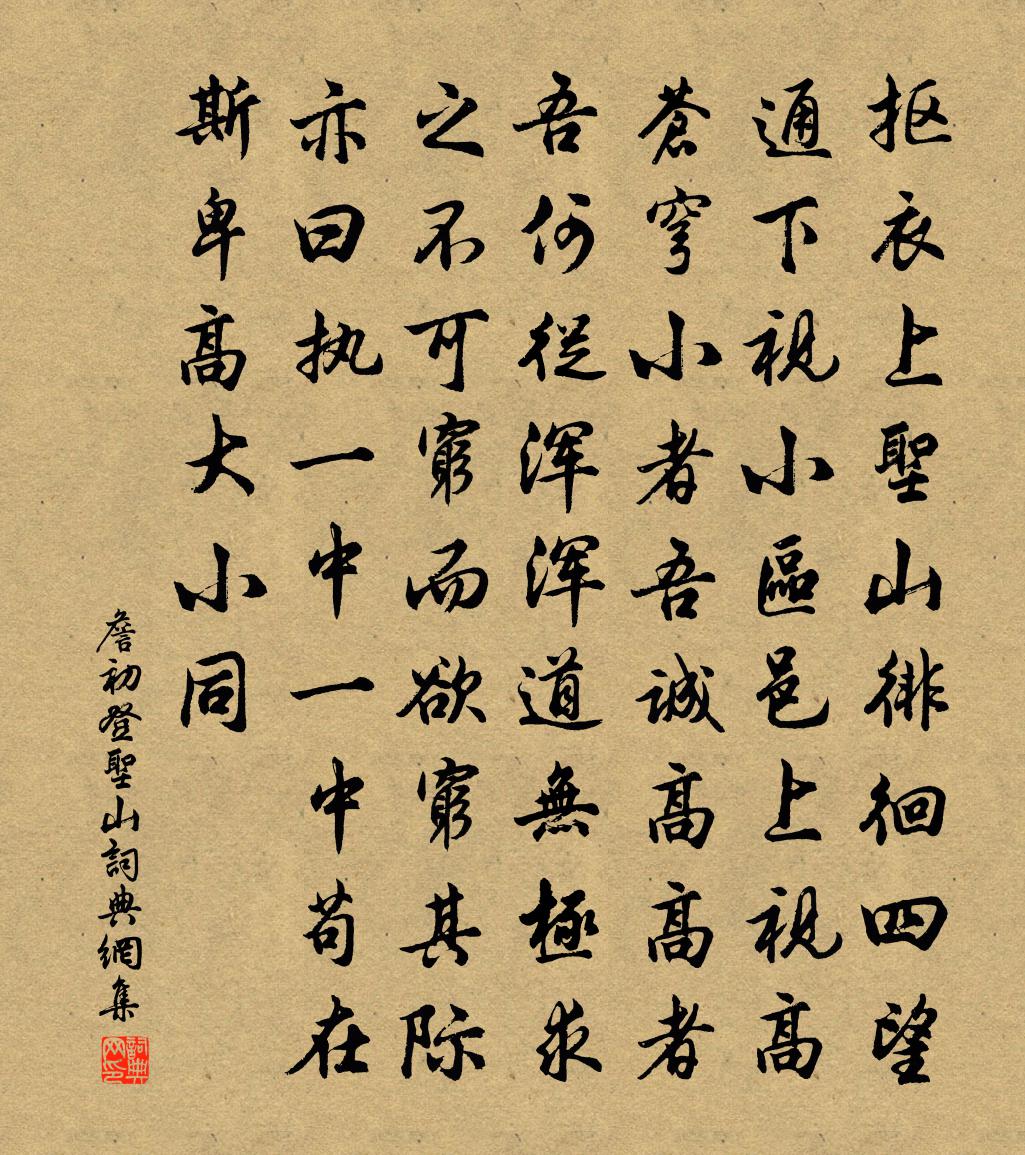 抠衣上聖山徘徊四望
通下視小區邑上視高
蒼穹小者吾誠高高者
吾何從浑浑道無極求
之不可窮而欲窮其际
亦曰执一中一中苟在
斯卑高大小同
詹初登聖山詞典網集
詞典网印